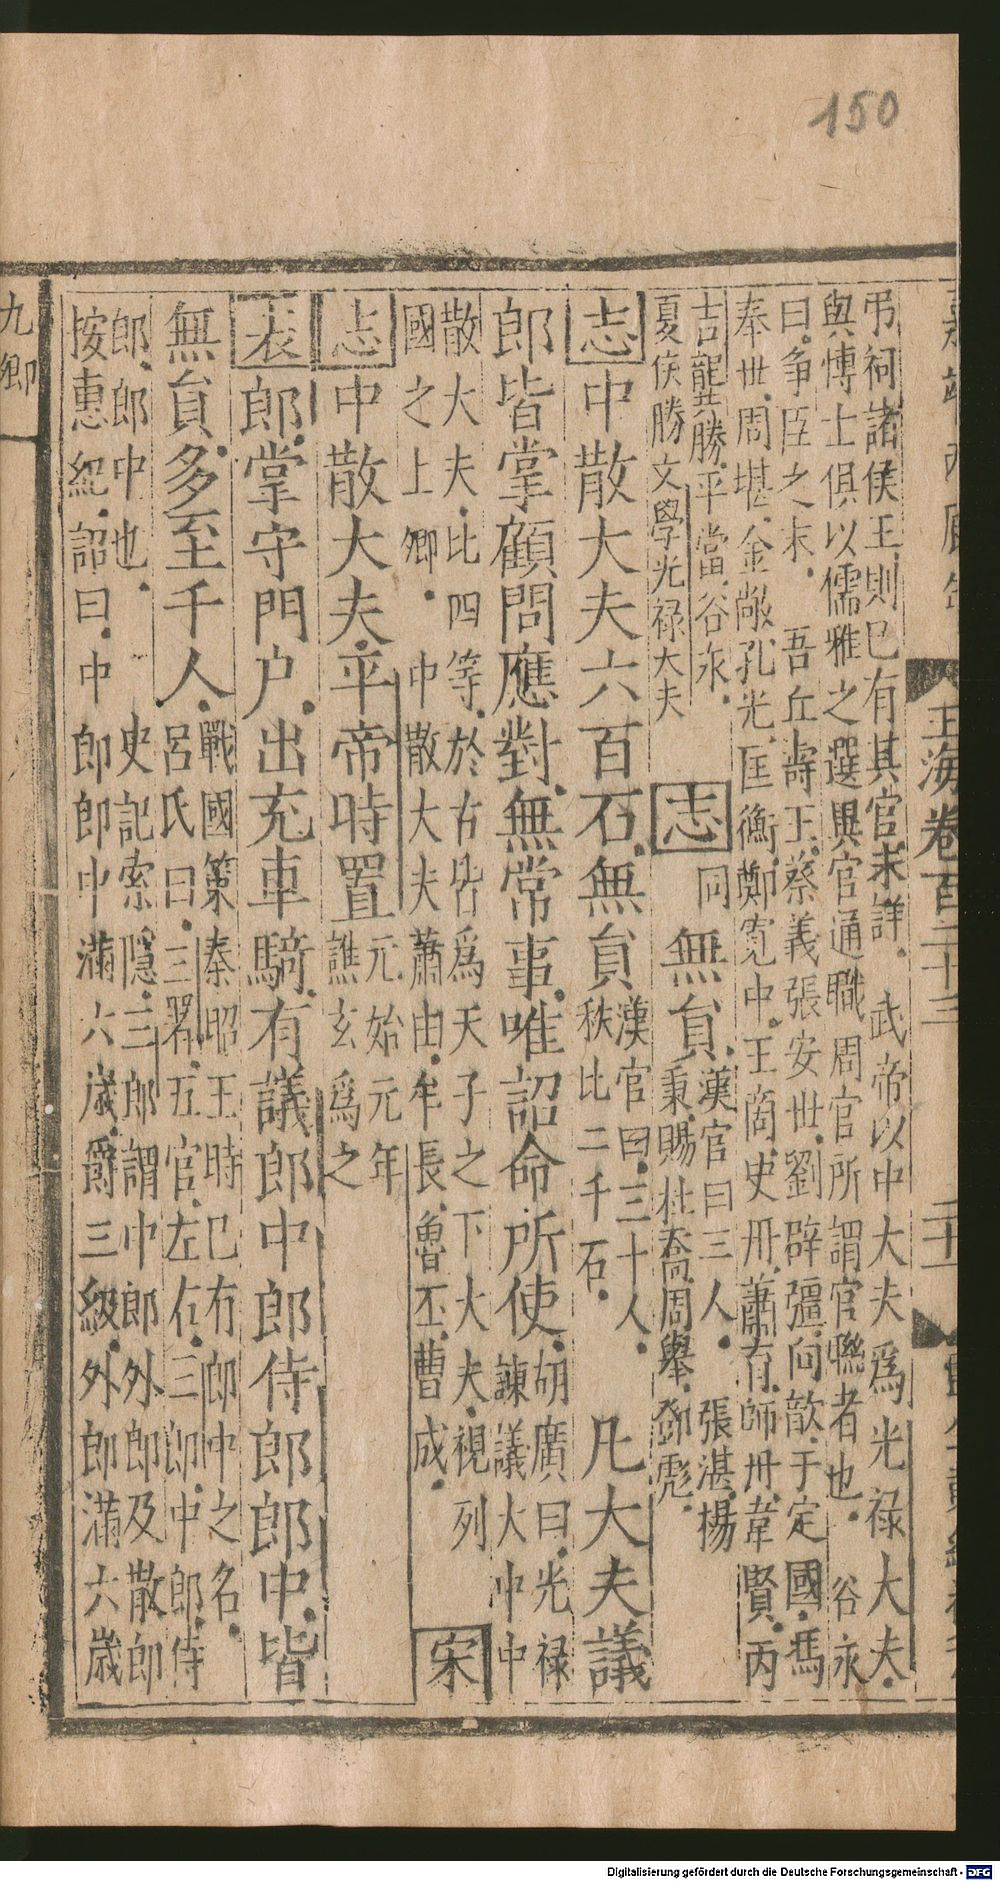 150
玉海卷百二十三
二十一
弔祠諸侯王則已有其官未詳 武帝以中大夫爲光禄大夫
與博士俱以儒雅之選異官通職周官所謂官聯者也 谷永
曰爭臣之末 吾丘壽王蔡義張安世劉辟彊向歆于定國馮
奉世周堪金敞孔光匡衡鄭寛中王商史丹蕭育師丹韋賢丙
吉龔勝平當谷永
夏侯勝文學光禄大夫
志
同
無貟
漢官曰三人 張湛楊
秉賜杜喬周舉鄧彪
志中散大夫六百石無貟
漢官曰三十人
秩比二千石
凡大夫議
郎皆掌顧問應對無常事唯詔命所使
胡廣曰光禄
諫議大中中
散大夫比四等於古皆爲天子之下大夫視列
國之上卿 中散大夫蕭由牟長魯丕曹成
宋
志中散大夫平帝時置
元始元年
譙玄爲之
表郎掌守門户出充車騎有議郎中郎侍郎郎中皆
無貟多至千人
戰國策秦昭王時已有郎中之名
呂氏曰三署五官左右三郎中郎侍
郎郎中也 史記索隱三郎謂中郎外郎及散郎
按惠紀詔曰中郎郎中滿六歲爵三級外郎滿六歲
九卿
Digitalisierung gefördert durch die Deutsche Forschungsgemeinschaft - DFG